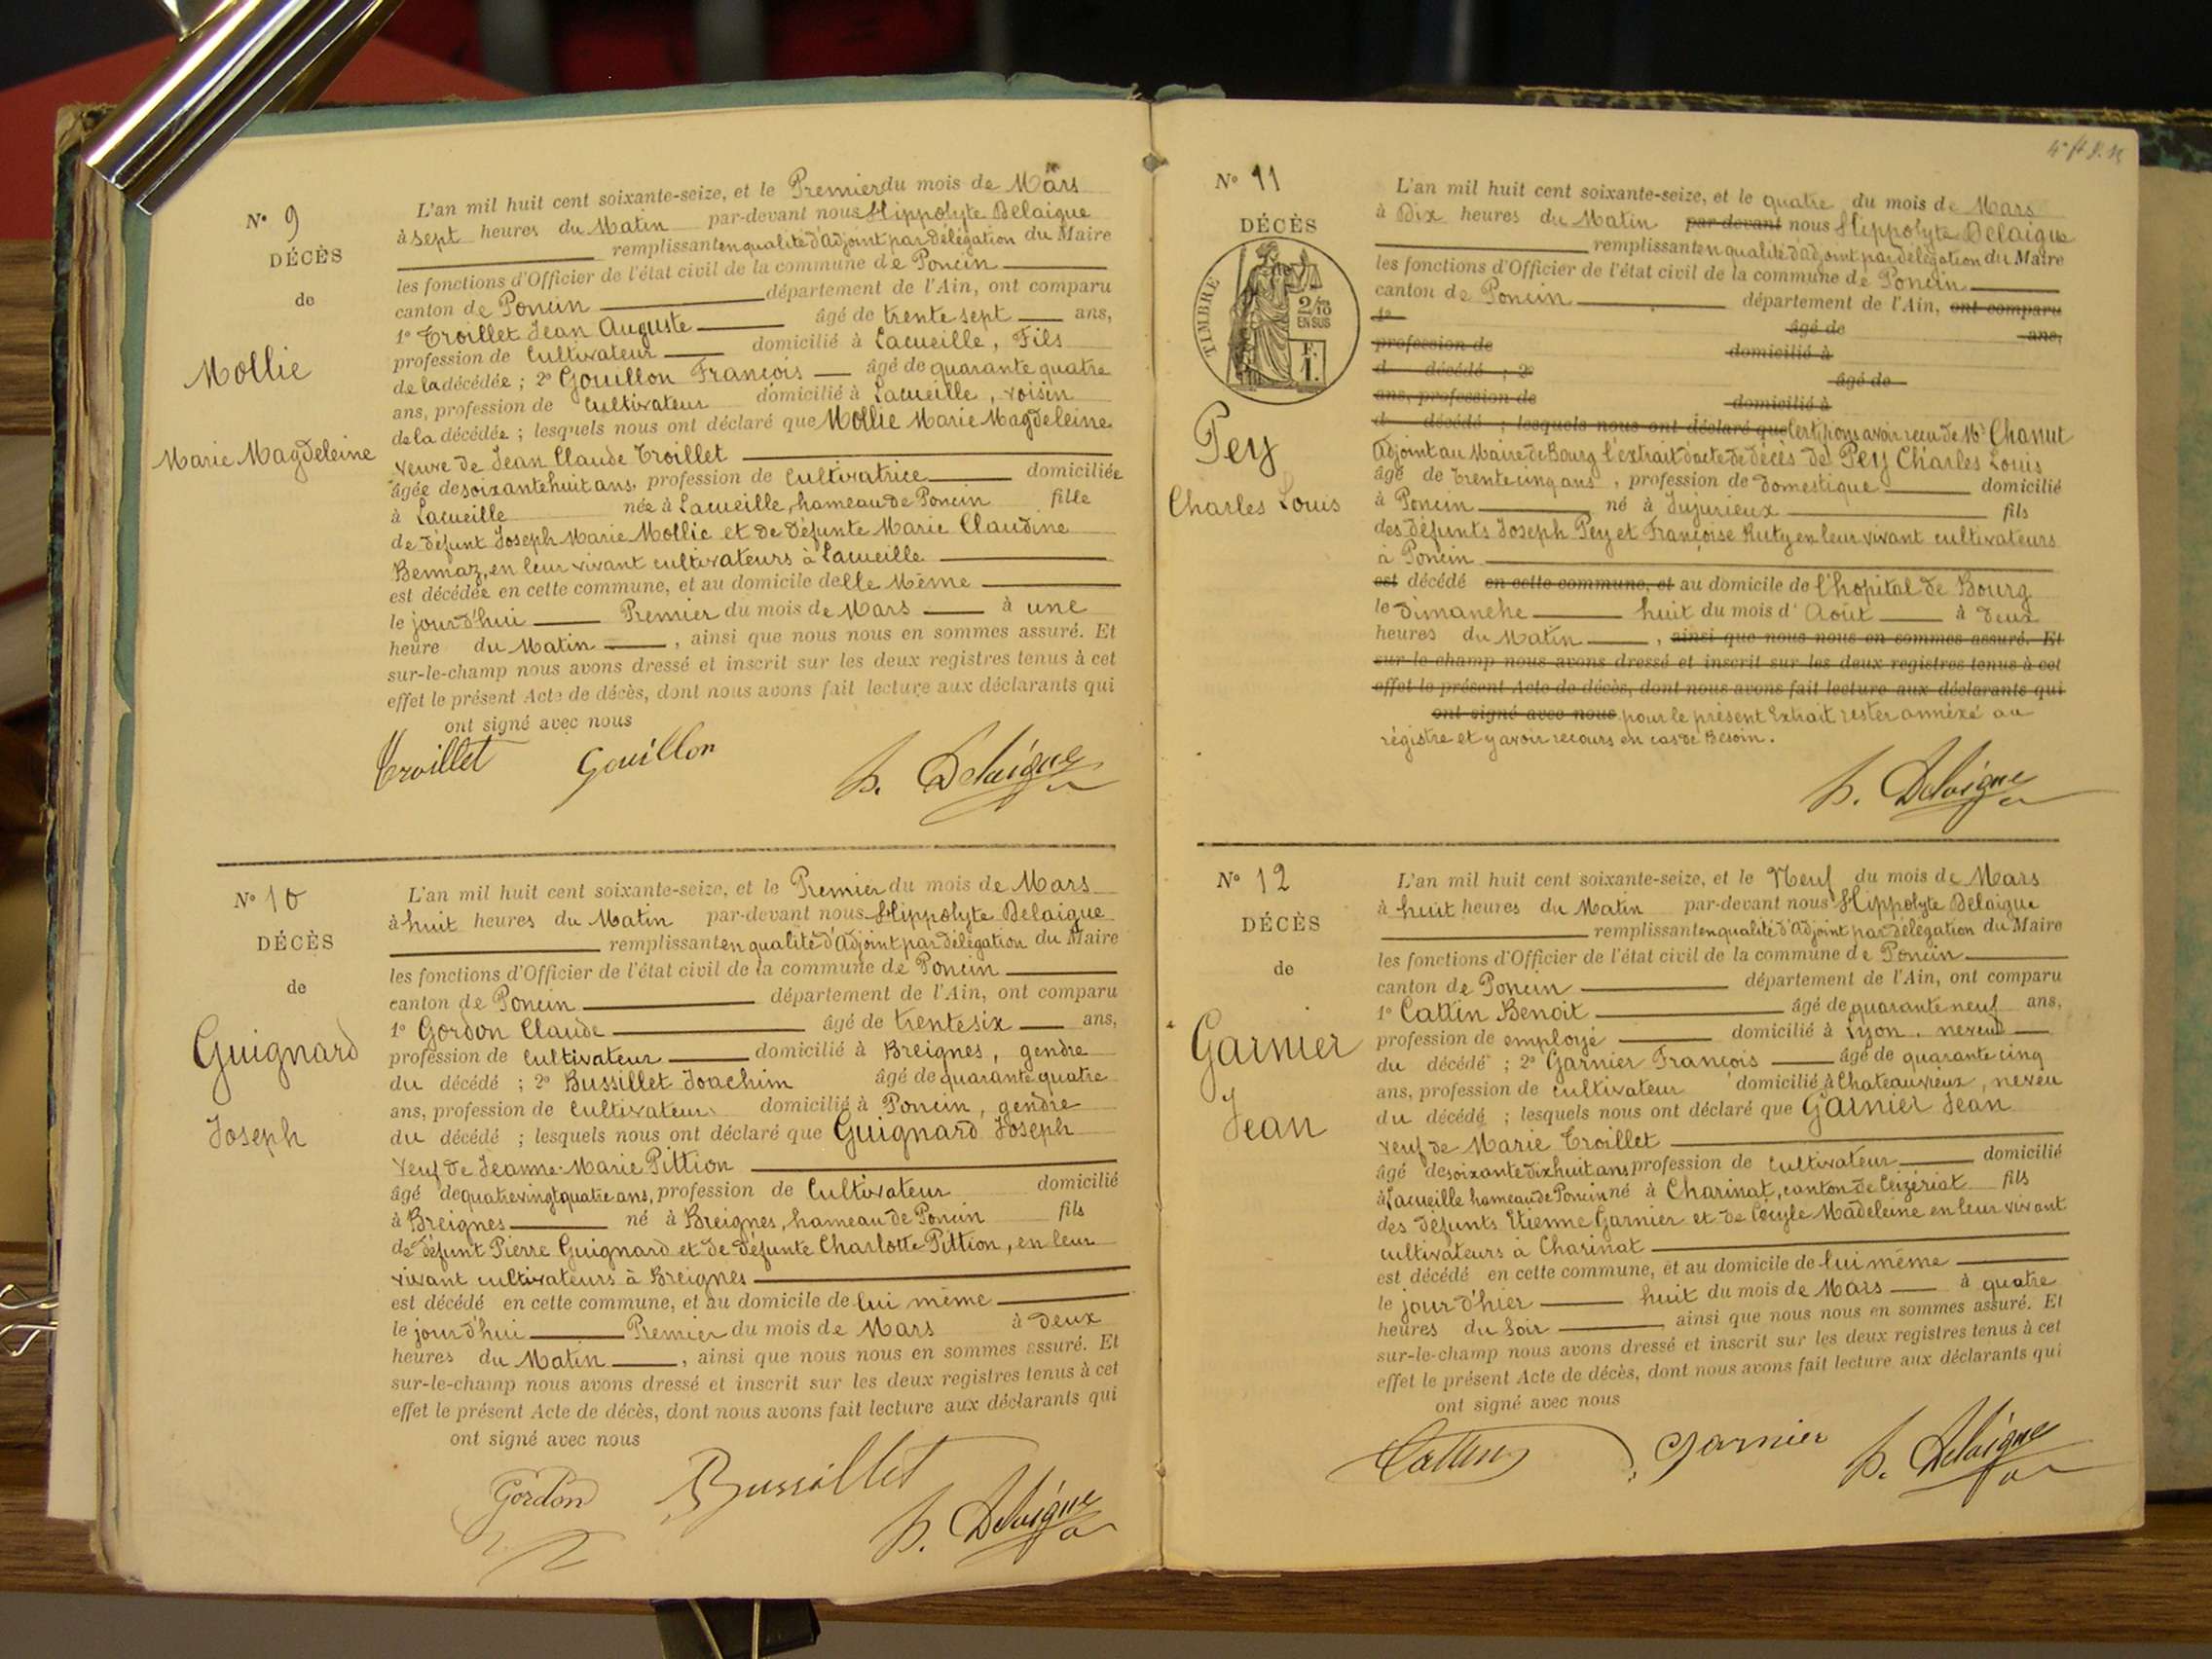 Nº 9
DÉCÈS
de
Mollie
Marie Magdeleine
L'an mil huit cent soixante-seize, et le Premier du mois de Mars
à sept heures du Matin par-devant nous Hippolyte Delaigue
remplissant en qualité d'adjoint par délégation du Maire
les fonctions d'Officier de l'état civil de la commune de Poncin
canton de Poncin département de l'Ain, ont comparu
1º Troillet Jean Auguste âgé de trente sept ans,
profession de Cultivateur domicilié à Lacueille, Fils
de la décédée ; 2º Gouillon François âgé de quarante quatre
ans, profession de Cultivateur domicilié à Lacueille, voisin
de la décédée ; lesquels nous ont déclaré que Mollie Marie Magdeleine
veuve de Jean Claude Troillet
âgée de soixante huit ans, profession de Cultivatrice domiciliée
à Lacueille née à Lacueille, hameau de Poncin fille
de défunt Joseph Marie Mollie et de défunte Marie Claudine
Bennaz, en leur vivant cultivateurs à Lacueille
est décédée en cette commune, et au domicile delle Même
le jourd'hui Premier du mois de Mars à une
heure du Matin, ainsi que nous nous en sommes assuré. Et
sur-le-champ nous avons dressé et inscrit sur les deux registres tenus à cet
effet le présent Acte de décès, dont nous avons fait lecture aux déclarants qui
ont signé avec nous
Troillet Gouillon h. Delaigue
Nº 10
DÉCÈS
de
Guignard
Joseph
L'an mil huit cent soixante-seize, et le Premier du mois de Mars
à huit heures du Matin par-devant nous Hippolyte Delaigue
remplissant en qualité d'adjoint par délégation du Maire
les fonctions d'Officier de l'état civil de la commune de Poncin
canton de Poncin département de l'Ain, ont comparu
1º Gordon Claude âgé de trente six ans,
profession de Cultivateur domicilié à Breignes, gendre
du décédé ; 2º Bussillet Joachim âgé de quarante quatre
ans, profession de Cultivateur domicilié à Poncin, gendre
du décédé ; lesquels nous ont déclaré que Guignard Joseph
veuf de Jeanne-Marie Pittion
âgé de quatre vingt quatre ans, profession de Cultivateur domicilié
à Breignes né à Breignes, hameau de Poncin fils
de défunt Pierre Guignard et de défunte Charlotte Pittion, en leur
vivant cultivateurs à Breignes
est décédé en cette commune, et au domicile de lui même
le jourd'hui Premier du mois de Mars à deux
heures du Matin, ainsi que nous nous en sommes assuré. Et
sur-le-champ nous avons dressé et inscrit sur les deux registres tenus à cet
effet le présent Acte de décès, dont nous avons fait lecture aux déclarants qui
ont signé avec nous
Gordon Bussillet h. Delaigue
Nº 11
DÉCÈS
TIMBRE
2/10
EN SUS
F.
1.
Pey
Charles Louis
L'an mil huit cent soixante-seize, et le quatre du mois de Mars
à Dix heures du Matin par devant nous Hippolyte Delaigue
remplissant en qualité d'adjoint par délégation du Maire
les fonctions d'Officier de l'état civil de la commune de Poncin
canton de Poncin département de l'Ain, ont comparu
1º âgé de ans,
profession de domicilié à
d décédé ; 2º âgé de
ans, profession de domicilié à
d décédé ; lesquels nous ont déclaré que Certifions avoir reçu de Mr Chanut
adjoint au Maire de Bourg l'extrait d'acte de décès de Pey Charles Louis
âgé de trente cinq ans, profession de domestique domicilié
à Poncin né à Jujurieux fils
des défunts Joseph Pey et Françoise Ruty en leur vivant cultivateurs
à Poncin
est décédé en cette commune, et au domicile de l'hopital de Bourg
le dimanche huit du mois d'Août à deux
heures du Matin, ainsi que nous nous en sommes assuré. Et
sur-le-champ nous avons dressé et inscrit sur les deux registres tenus à cet
effet le présent Acte de décès, dont nous avons fait lecture aux déclarants qui
ont signé avec nous pour le présent Extrait rester annéxé au
régistre et y avoir recours en cas de Besoin.
h. Delaigue
Nº 12
DÉCÈS
de
Garnier
Jean
L'an mil huit cent soixante-seize, et le Neuf du mois de Mars
à huit heures du Matin par-devant nous Hippolyte Delaigue
remplissant en qualité d'adjoint par délégation du Maire
les fonctions d'Officier de l'état civil de la commune de Poncin
canton de Poncin département de l'Ain, ont comparu
1º Cattin Benoit âgé de quarante neuf ans,
profession de employé domicilié à Lyon, neveu
du décédé ; 2º Garnier François âgé de quarante cinq
ans, profession de Cultivateur domicilié à Chateauvieux, neveu
du décédé ; lesquels nous ont déclaré que Garnier Jean
veuf de Marie Troillet
âgé de soixante dix huit ans profession de Cultivateur domicilié
à Lacueille hameau de Poncin né à Charinat, canton de Ceizériat fils
des défunts Etienne Garnier et de Cocyle Madeleine en leur vivant
cultivateurs à Charinat
est décédé en cette commune, et au domicile de lui même
le jour d'hier huit du mois de Mars à quatre
heures du Soir ainsi que nous nous en sommes assuré. Et
sur-le-champ nous avons dressé et inscrit sur les deux registres tenus à cet
effet le présent Acte de décès, dont nous avons fait lecture aux déclarants qui
ont signé avec nous
Cattin Garnier h. Delaigue